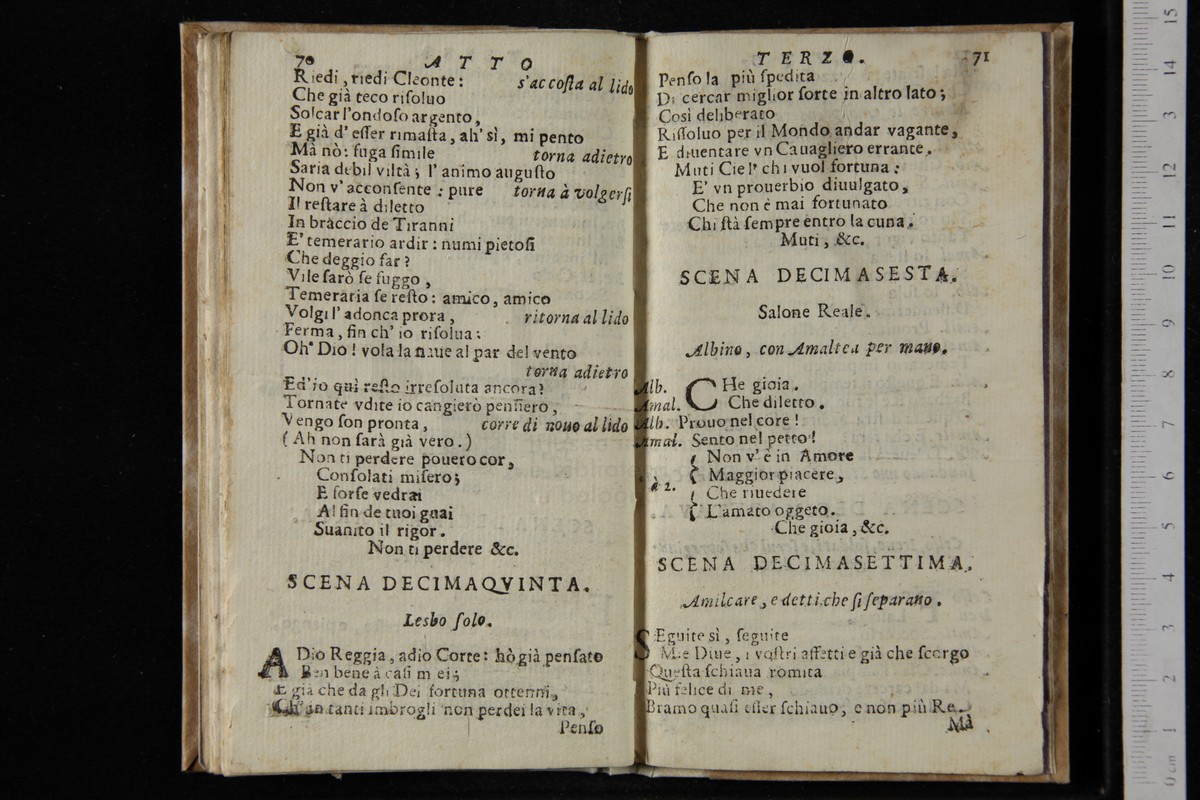 70 ATTO
Riedi, riedi Cleonte: s'accosta al lido
Che già teco risoluo
Solcar l'ondoso argento,
E già d'esser rimasta, ah' sì, mi pento
Mà nò: fuga simile torna adietro
Saria debil viltà; l'animo augusto
Non v'acconsente: pure torna à volgersi
Il restare à diletto
In braccio de Tiranni
E' temerario ardir: numi pietosi
Che deggio far?
Vile sarò se fuggo,
Temeraria se resto: amico, amico
Volgi l'adonca prora, ritorna al lido
Ferma, fin ch'io risolua:
Oh' Dio! vola la naue al par del vento
torna adietro
Ed'io quì resto irresoluta ancora?
Tornate vdite io cangierò pensiero,
Vengo son pronta, corre di nouo al lido
(Ah non sarà già vero.)
Non ti perdere pouero cor,
Consolati misero;
E forse vedrai
Al fin de tuoi guai
Suanito il rigor.
Non ti perdere &c.
SCENA DECIMAQVINTA.
Lesbo solo.
ADio Reggia, adio Corte: hò già pensato
Ben bene à casi miei;
E già che da gli Dei fortuna ottenni,
Ch'in tanti imbrogli non perdei la vita,
Penso
TERZO. 71
Penso la più spedita
Di cercar miglior sorte in altro lato;
Così deliberato
Rissoluo per il Mondo andar vagante,
E diuentare vn Cauagliero errante.
Muti Ciel' chi vuol fortuna:
E' vn prouerbio diuulgato,
Che non è mai fortunato
Chi stà sempre entro la cuna.
Muti, &c.
SCENA DECIMASESTA.
Salone Reale.
Albino, con Amaltea per mano.
Alb. CHe gioia.
Amal. Che diletto.
Alb. Prouo nel core!
Amal. Sento nel petto!
Non v'è in Amore
Maggior piacere,
à 2.
Che riuedere
L'amato oggeto.
Che gioia, &c.
SCENA DECIMASETTIMA.
Amilcare, e detti che si separano.
SEguite sì, seguite
Mie Diue, i vostri affetti e già che scorgo
Questa schiaua romita
Più felice di me,
Bramo quasi esser schiauo, e non più Re.
Mà